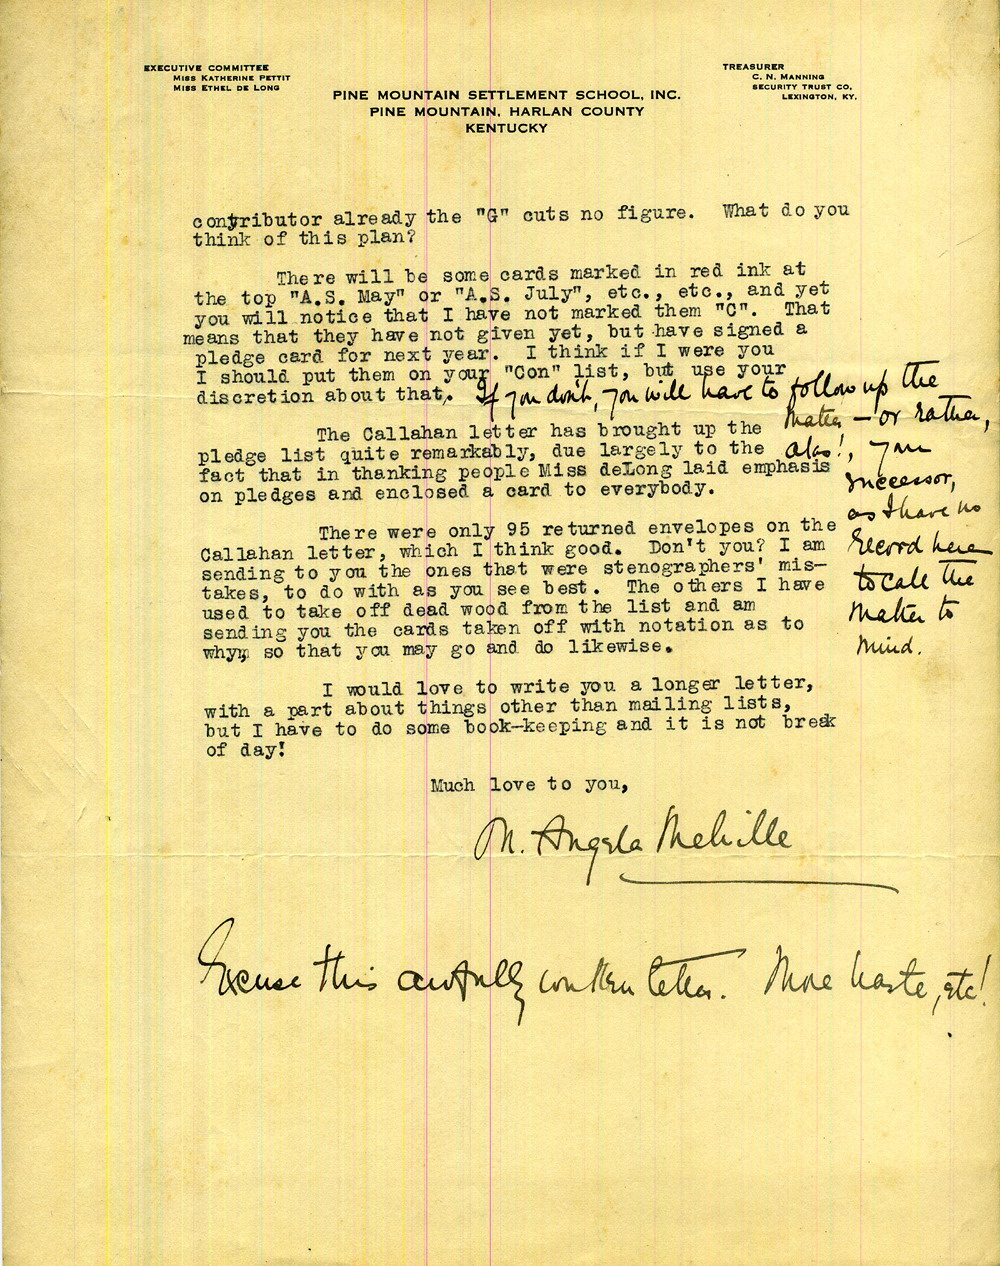 EXECUTIVE COMMITTEE
MISS KATHERINE PETTIT
MISS ETHEL DE LONG
TREASURER
C. N. MANNING
SECURITY TRUST CO.
LEXINGTON, KY.
PINE MOUNTAIN SETTLEMENT SCHOOL, INC.
PINE MOUNTAIN, HARLAN COUNTY
KENTUCKY
contributor already the "G" cuts no figure. What do you
think of this plan?
There will be some cards marked in red ink at
the top "A.S. May" or "A.S. July", etc., etc., and yet
you will notice that I have not marked them "C". That
means that they have not given yet, but have signed a
pledge card for next year. I think if I were you
I should put them on your "Con" list, but use your
discretion about that. If you don't, you will have to follow up the
matter — or rather,
alas!, your
successor,
as I have no
record here
to call the
matter to
mind.
The Callahan letter has brought up the
pledge list quite remarkably, due largely to the
fact that in thanking people Miss deLong laid emphasis
on pledges and enclosed a card to everybody.
There were only 95 returned envelopes on the
Callahan letter, which I think good. Don't you? I am
sending to you the ones that were stenographers' mis-
takes, to do with as you see best. The others I have
used to take off dead wood from the list and am
sending you the cards taken off with notation as to
why, so that you may go and do likewise.
I would love to write you a longer letter,
with a part about things other than mailing lists,
but I have to do some book-keeping and it is not break
of day!
Much love to you,
M. Angela Melville
Excuse this awfully written letter. More haste, etc!